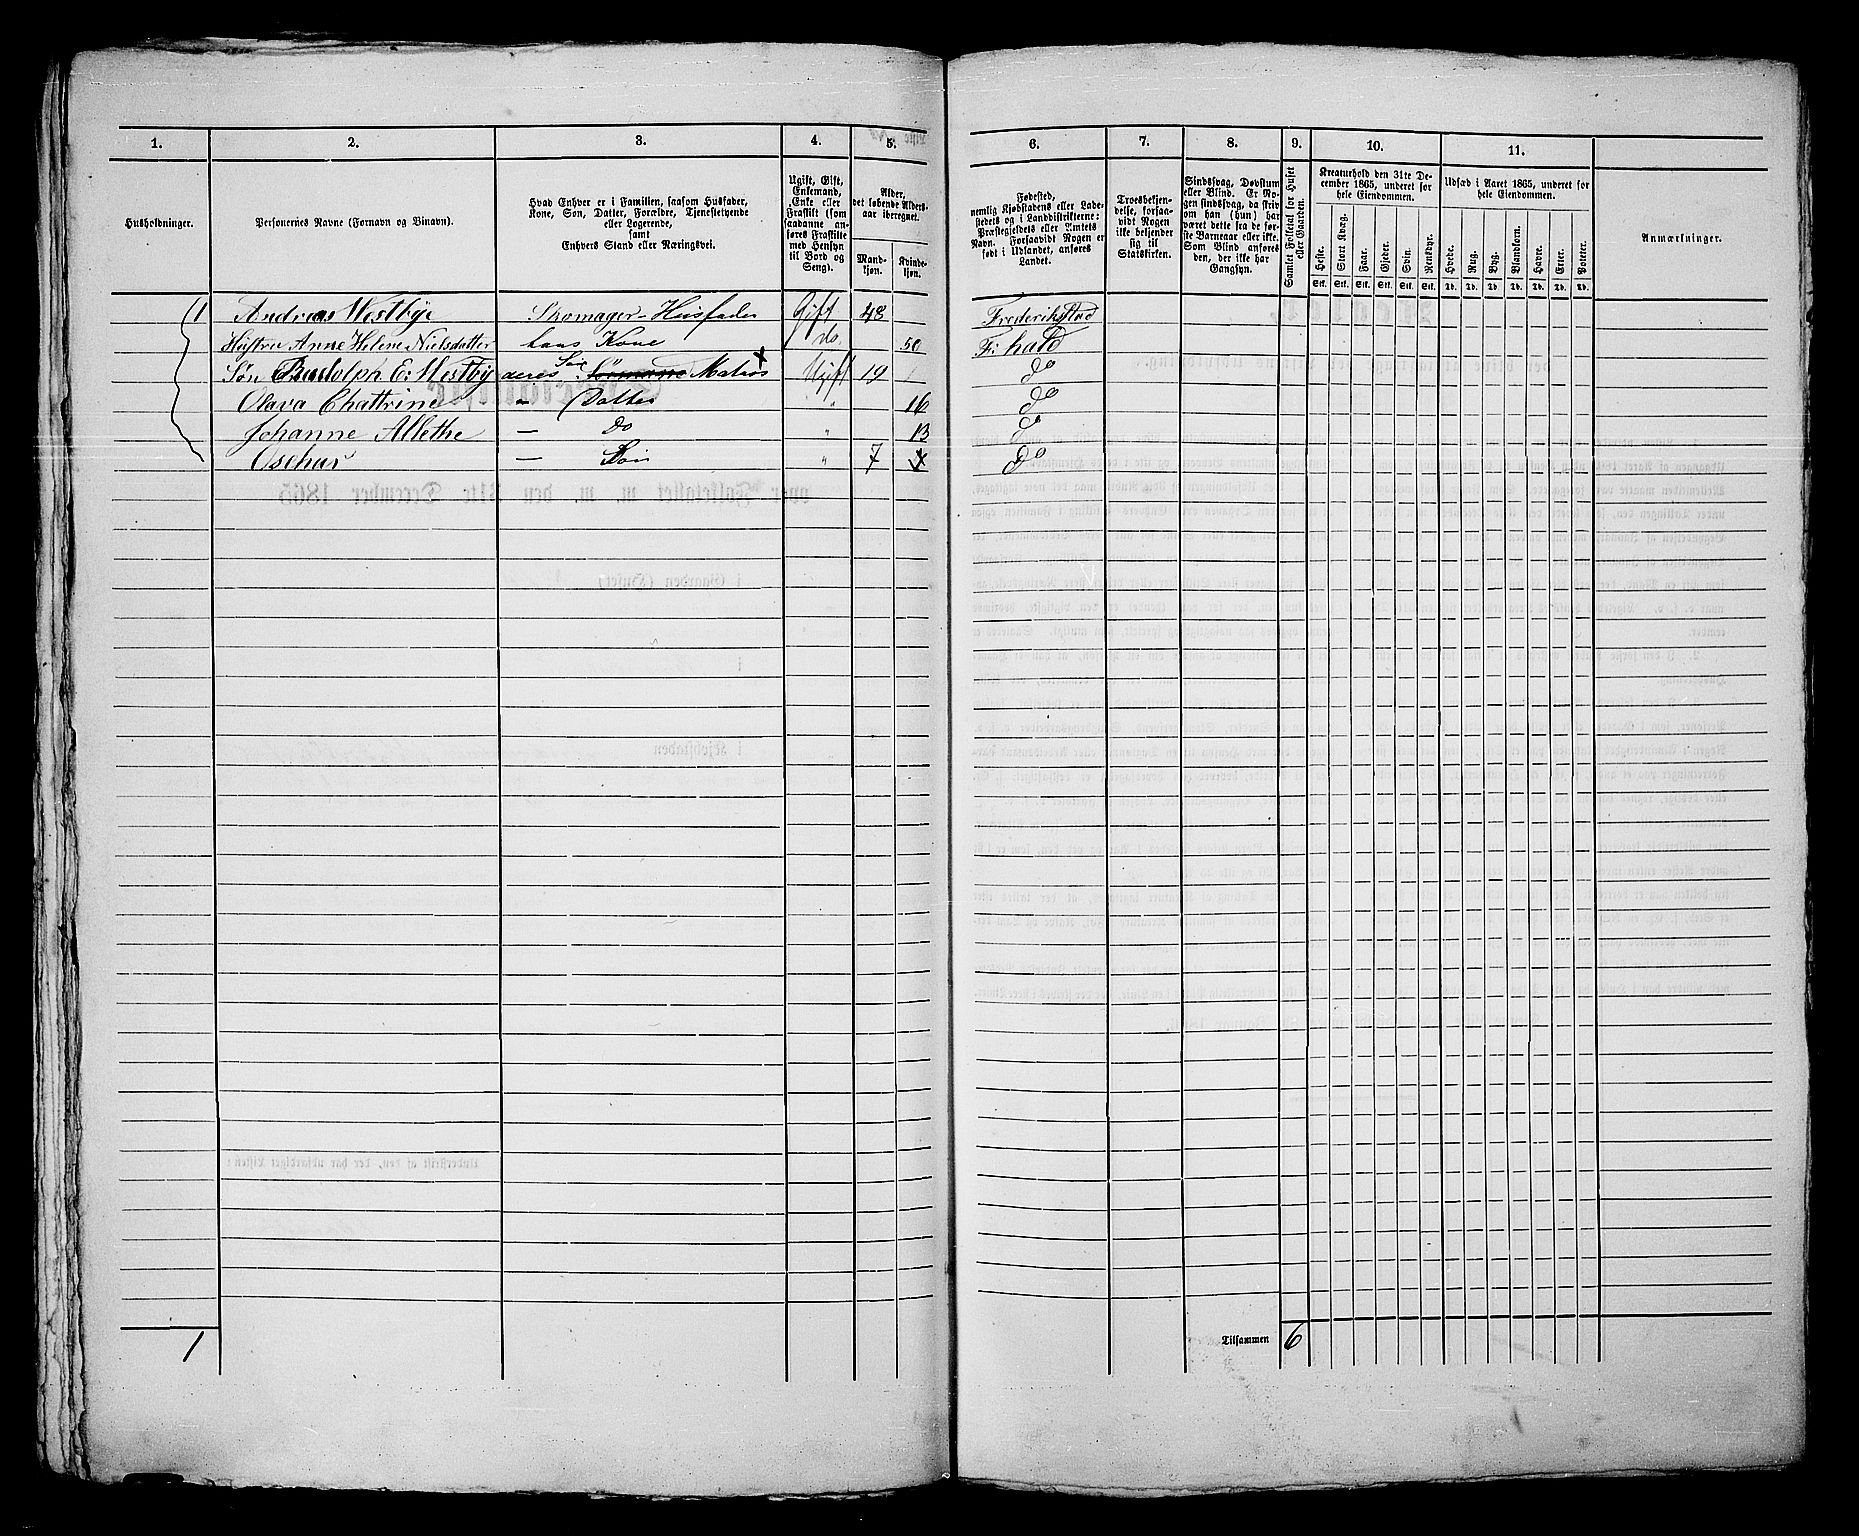 1. 2. 3. 4. 5. 6. 7. 8. 9. 10. 11.
Husholdninger.
Personernes Navne (Fornavn og Binavn).
Hvad Enhver er i Familien, saasom Husfader,
Kone, Søn, Datter, Forældre, Tjenestetyende
eller Logerende,
samt
Enhvers Stand eller Næringsvei.
Ugift, Gift,
Enkemand,
Enke eller
Fraskilt (som
saadanne an-
føres Fraskilte
med Hensyn
til Bord og
Seng).
Alder,
det løbende Alders-
aar iberegnet.
Mand-
kjøn.
Kvinde-
kjøn.
Fødested,
nemlig Kjøbstadens eller Lade-
stedets og i Landdistrikterne:
Præstegjeldets eller Amtets
Navn. Forsaavidt Nogen er
født i Udlandet, anføres
Landet.
Troesbekjen-
delse, forsaa-
vidt Nogen
ikke bekjender
sig til
Statskirken.
Sindssvag, Døvstum
eller Blind. Er No-
gen sindssvag, da skriv
om han (hun) har
været dette fra de før-
ste Barneaar eller ikke.
Som Blind anføres
den, der ikke har
Gangsyn.
Samlet Folketal for Huset
eller Gaarden.
Kreaturhold den 31te De-
cember 1865, underet for
hele Eiendommen.
Heste. Stort Kvæg. Faar. Gjeder. Svin. Rensdyr.
Stk. Stk. Stk. Stk. Stk. Stk.
Udsæd i Aaret 1865, underet for
hele Eiendommen.
Hvede. Rug. Byg. Blandkorn. Havre. Erter. Poteter.
Td. Td. Td. Td. Td. Td. Td.
Anmærkninger.
1 Andreas Westbye Skomager - Husfader Gift 48 Frederikstad
Hustru Anne Helene Nielsdatter hans Kone do. 50 Fr: hald
Søn Rudolph E: Westby deres Søn Matros x Ugift 19 do
Olava Chattrine - Datter " 16 do
Johanne Allethe - Do " 13 do
Oschar - Søn " 7 do
1 Tilsammen 6